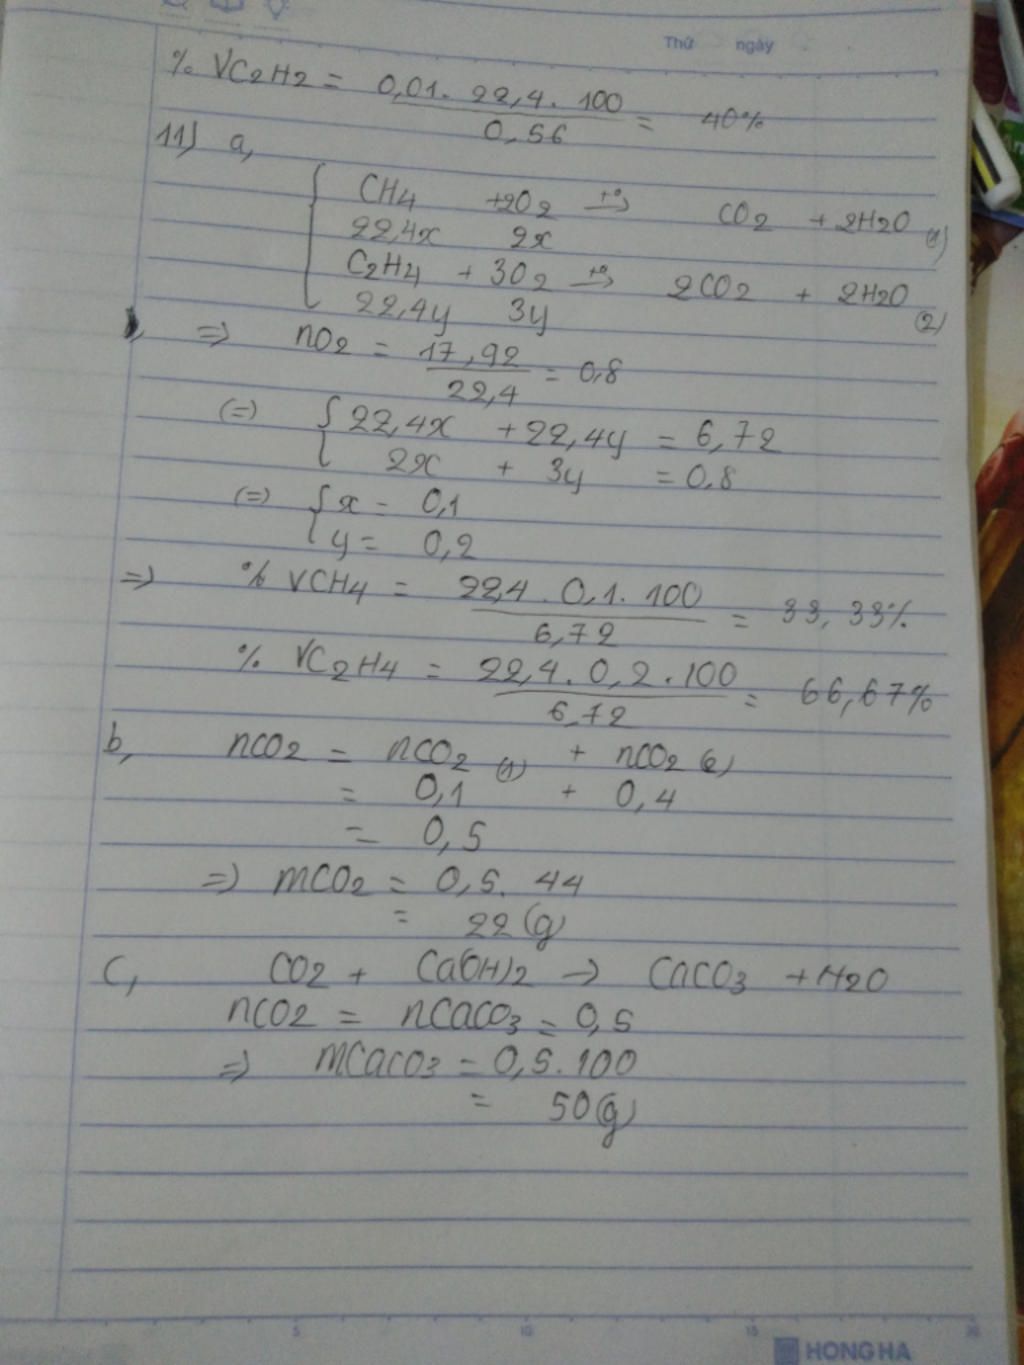 Thứ ngày
% VC2H2 = 0,01. 22,4. 100 / 0,56 = 40%
11) a,
CH4 +2O2 t°→ CO2 + 2H2O (1)
22,4x 2x
C2H4 + 3O2 t°→ 2CO2 + 2H2O (2)
22,4y 3y
=> nO2 = 17,92 / 22,4 = 0,8
(=) { 22,4x + 22,4y = 6,72
2x + 3y = 0,8
(=) { x = 0,1
y = 0,2
=> % VCH4 = 22,4. 0,1. 100 / 6,72 = 33,33%
% VC2H4 = 22,4. 0,2. 100 / 6,72 = 66,67%
b, nCO2 = nCO2 (1) + nCO2 (2)
= 0,1 + 0,4
= 0,5
=> mCO2 = 0,5. 44
= 22 (g)
C, CO2 + Ca(OH)2 → CaCO3 + H2O
nCO2 = nCaCO3 = 0,5
=> mCaCO3 = 0,5. 100
= 50(g)
5 10 15 20
HONG HA